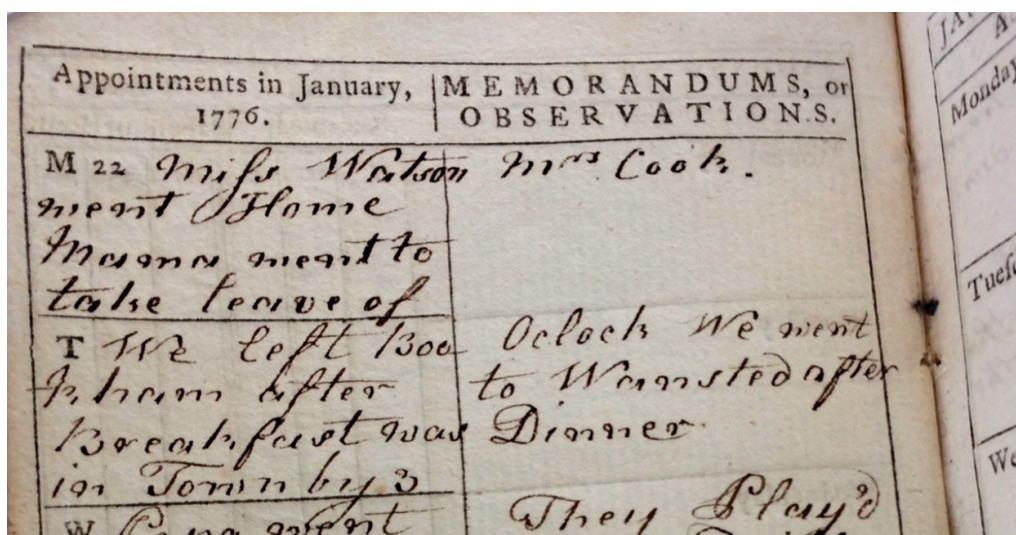 Appointments in January,
1776.
MEMORANDUMS, or
OBSERVATIONS.
M 22 Miss Watson
went Home
Mama went to
take leave of
Mrs Cook.
T We left Boo
kham after
Breakfast was
in Town by 3
Oclock We went
to Wansted after
Dinner
W Papa went
They Play'd
Monday